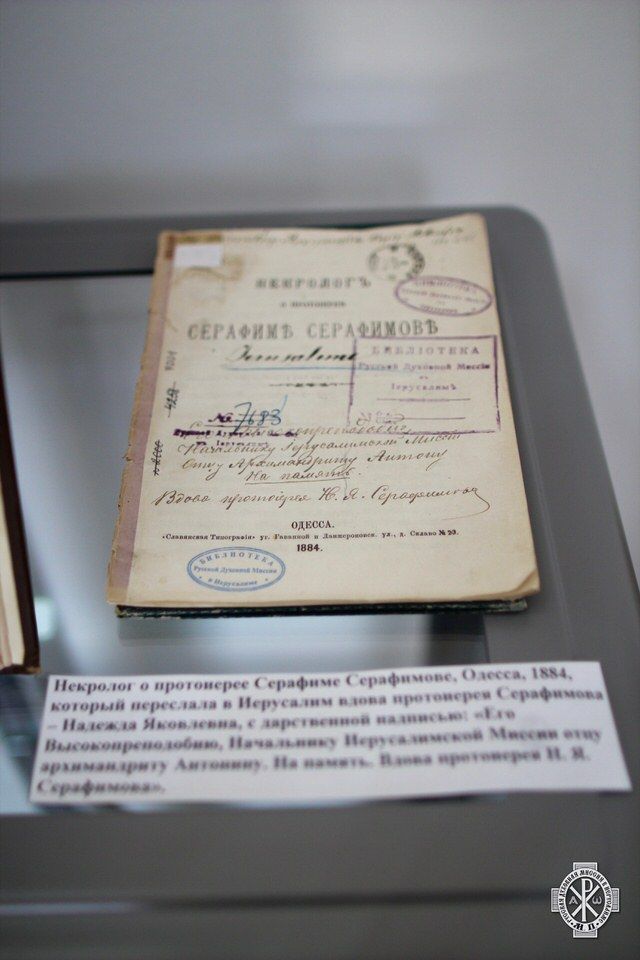 НЕКРОЛОГЪ
О ПРОТОІЕРЕѢ
СЕРАФИМѢ СЕРАФИМОВѢ
БИБЛІОТЕКА
Русской Духовной Миссіи
въ
Іерусалимѣ
№ 7683
Начальнику Іерусалимской Миссіи
Отцу Архимандриту Антону
На память
Вдова протоіерея Н. Я. Серафимова
ОДЕССА.
«Славянская Типографія» уг. Гаванной и Ланжероновск. ул., д. Склаво № 20.
1884.
БИБЛІОТЕКА
Русской Духовной Миссіи
въ Іерусалимѣ
Некролог о протоиерее Серафиме Серафимове, Одесса, 1884,
который переслала в Иерусалим вдова протоиерея Серафимова
– Надежда Яковлевна, с дарственной надписью: «Его
Высокопреподобию, Начальнику Иерусалимской Миссии отцу
архимандриту Антонину. На память. Вдова протоиерея Н. Я.
Серафимова».